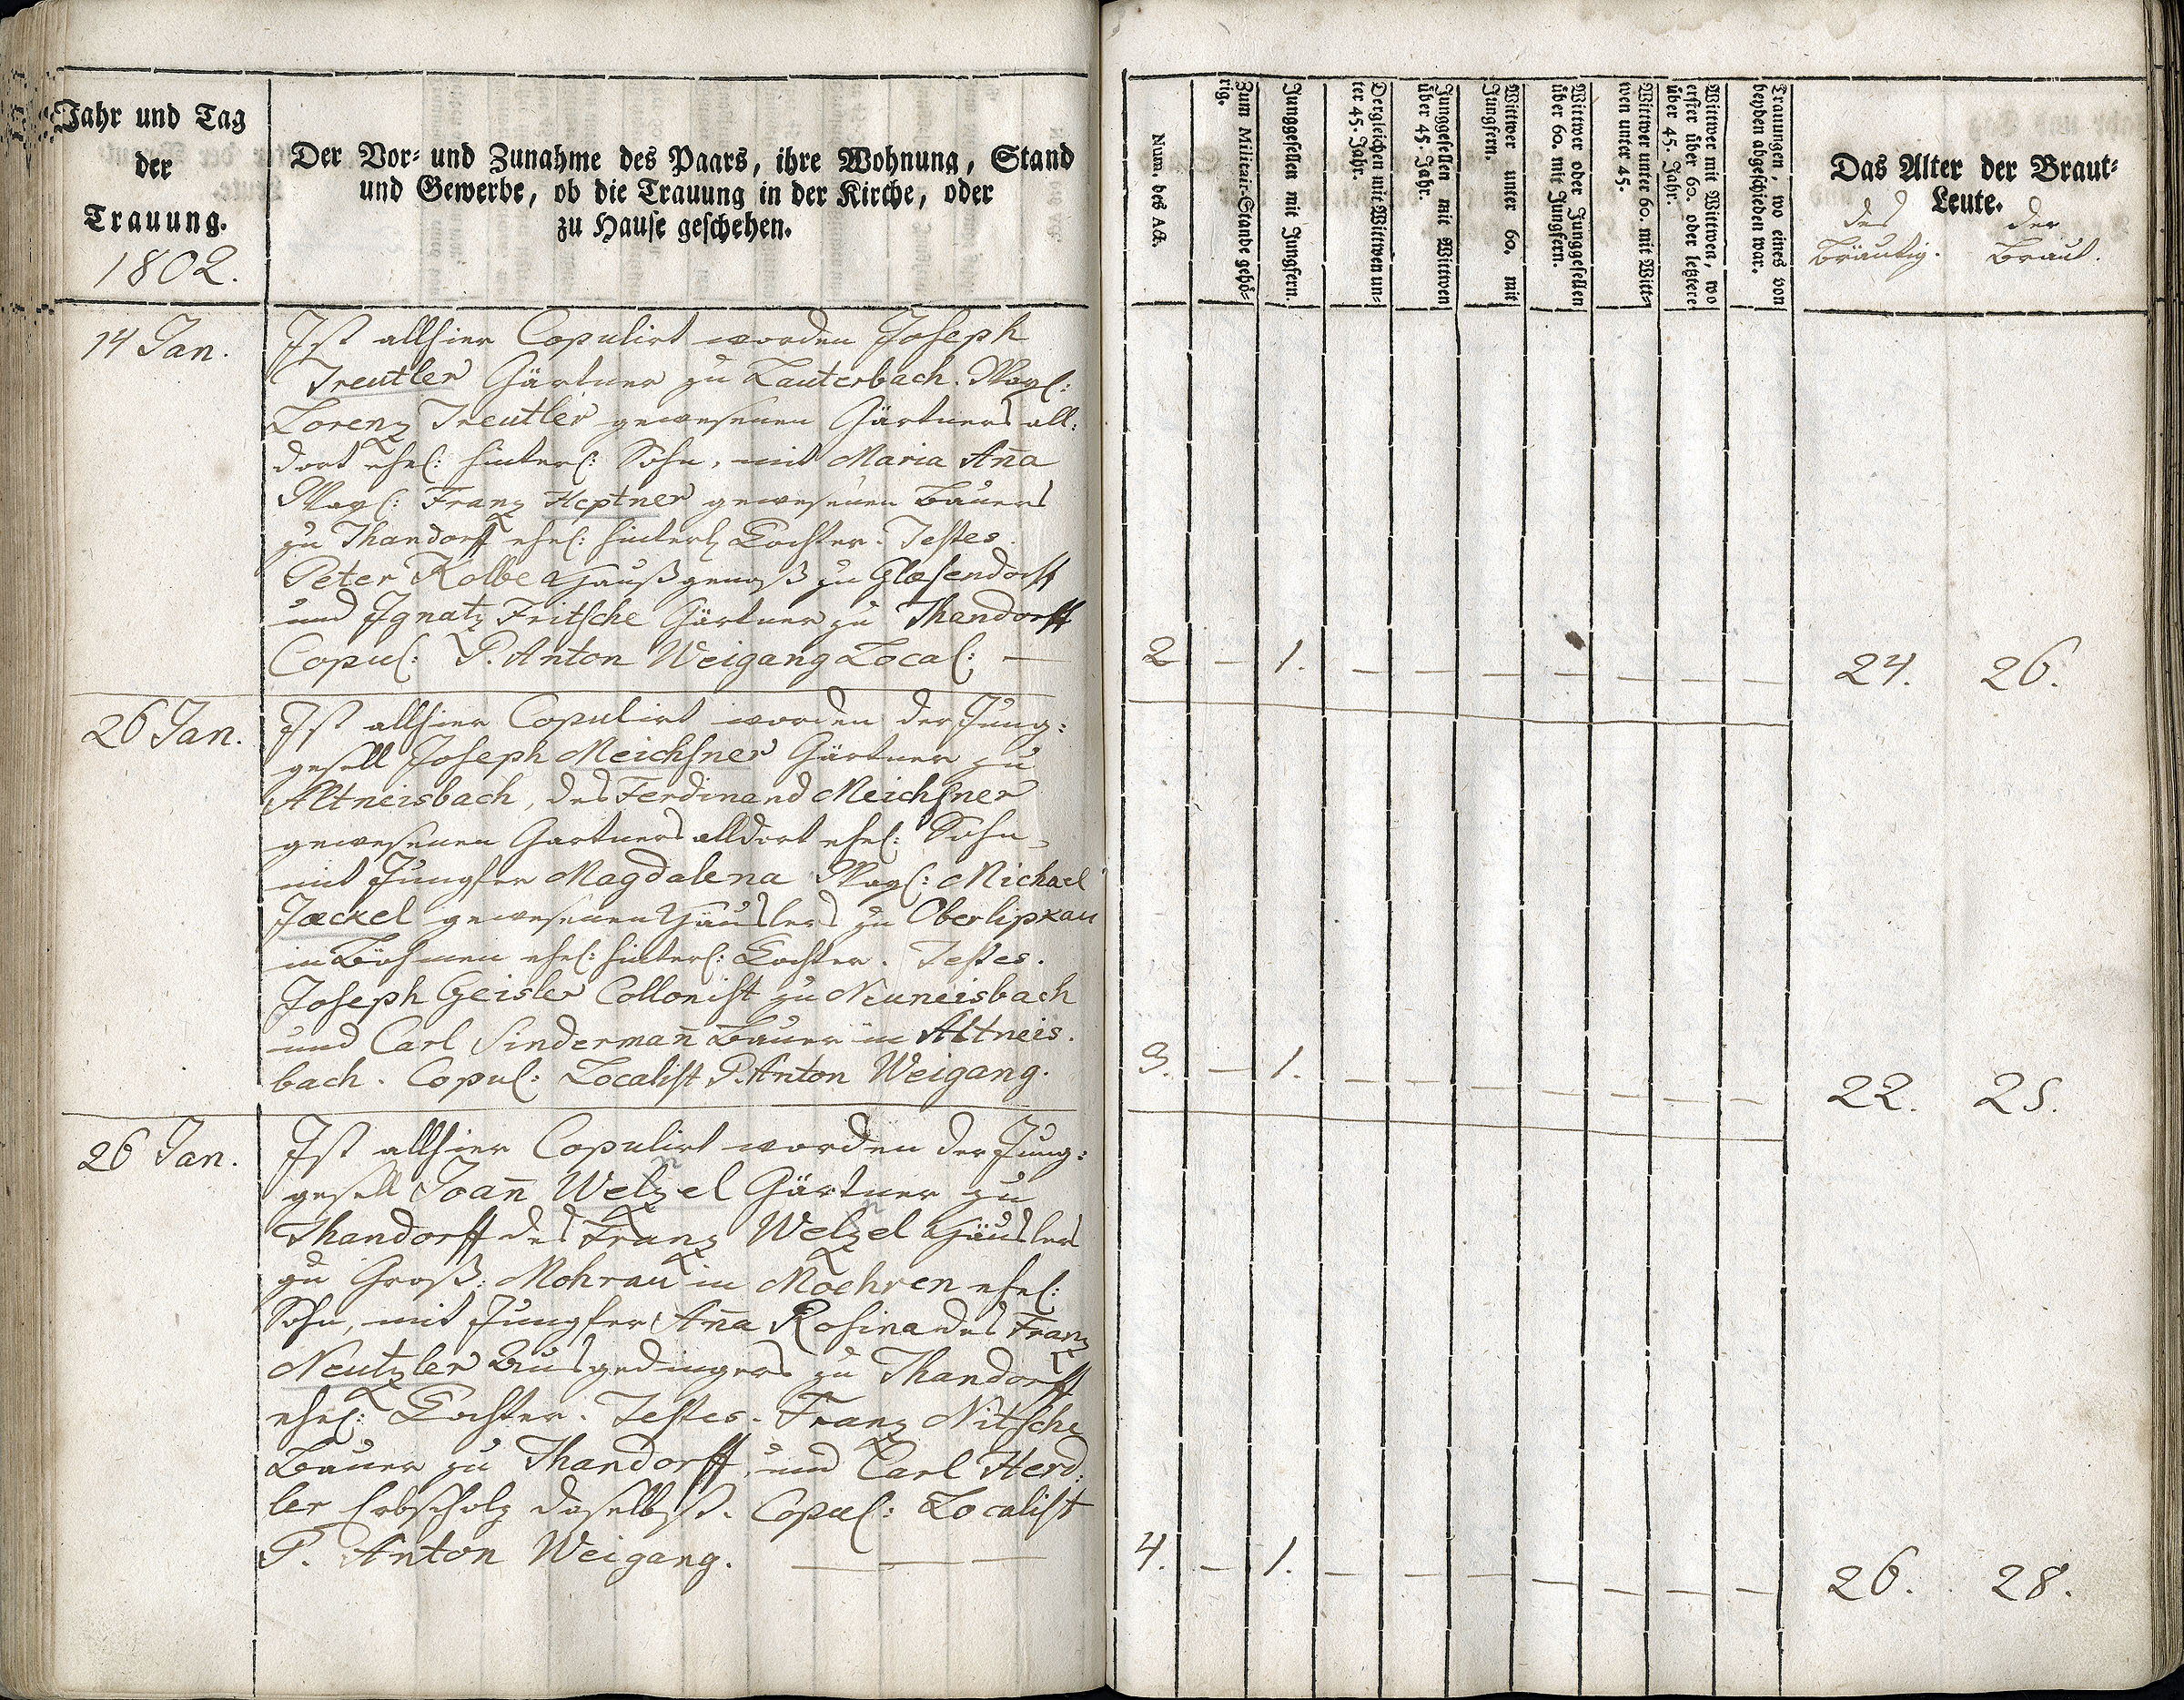 Jahr und Tag
der
Trauung.
1802.
Der Vor- und Zunahme des Paars, ihre Wohnung, Stand
und Gewerbe, ob die Trauung in der Kirche, oder
zu Hause geschehen.
14 Jan.
Ist allhier Copulirt worden Joseph
Treutler Gärtner zu Lauterbach.
Lorenz Treutler gewesenen Gärtners all:
dort ehel: hinterl: Sohn, mit Maria Aña
Franz Heptner gewesenen Bauers
zu Thandorff ehel: hinterl Tochter. Testes.
Peter Kolbe Haußgenoß zu Glasendorff
und Ignatz Fritsche Gärtner zu Thandorff
Copul: P. Anton Weigang Local: —
26 Jan.
Ist allhier Copulirt worden der Jung:
gesell Joseph Meichsner Gärtner zu
Altneisbach, des Ferdinand Meichsner
gewesenen Gartners alldort ehel: Sohn,
mit Jungfer Magdalena Michael
Jackel gewesenen Häuslers zu Oberlipkau
in Böhmen ehel: hinterl: Tochter. Testes.
Joseph Geisler Collonist zu Neuneisbach
und Carl Sindermañ Bauer in Altneis.
bach. Copul: Localist P. Anton Weigang.
26 Jan.
Ist allhier Copulirt worden der Jung:
gesell Joañ Welzel Gärtner zu
Thandorff des Franz Welzel Häuslers
zu Groß: Mohrau in Maehren ehel:
Sohn, mit Jungfer Aña Rosina des Franz
Neutzler Ausgedingers zu Thandorff
ehel: Tochter. Testes. Franz Nitsche
Bauer zu Thandorff, und Carl Herd:
ler Erbscholz daselbst. Copul: Localist
P. Anton Weigang. — — —
Num. des Act.
Zum Militair-Stande gehö-
rig.
Junggesellen mit Jungfern.
Dergleichen mit Wittwen un-
ter 45. Jahr.
Junggesellen mit Wittwen
über 45. Jahr.
Wittwer unter 60. mit
Jungfern.
Wittwer oder Junggesellen
über 60. mit Jungfern.
Wittwer unter 60. mit Witt-
wen unter 45.
Wittwer mit Wittwen, wo
erster über 60. oder letztere
über 45. Jahr.
Trauungen, wo eines von
beyden abgeschieden war.
Das Alter der Braut-
Leute.
des der
Bräutig. Braut.
2 — 1. — — — — — — — 24. 26.
3. — 1. — — — — — — — 22. 25.
4. — 1. — — — — — — — 26. 28.